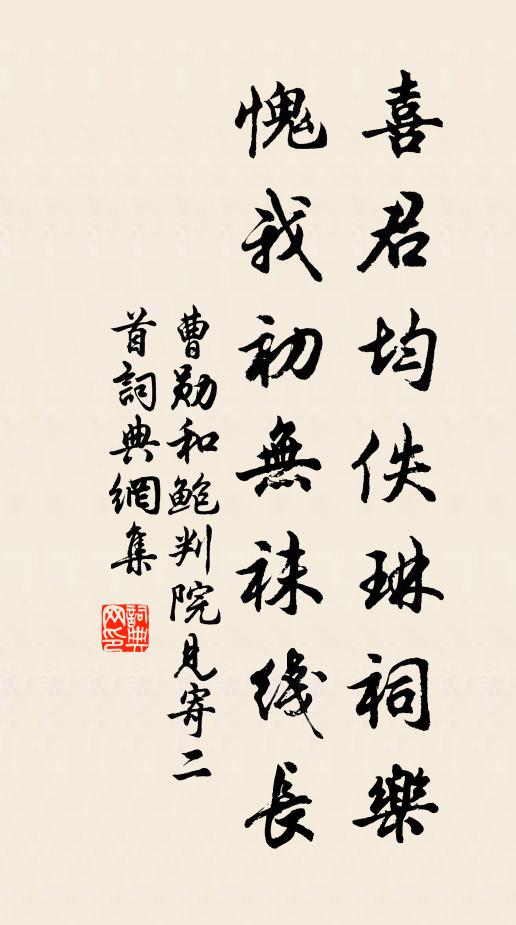 喜君均佚琳祠樂
愧我初無袜綫長
曹勛和鮑判院見寄二
首詞典網集
詞典
网印